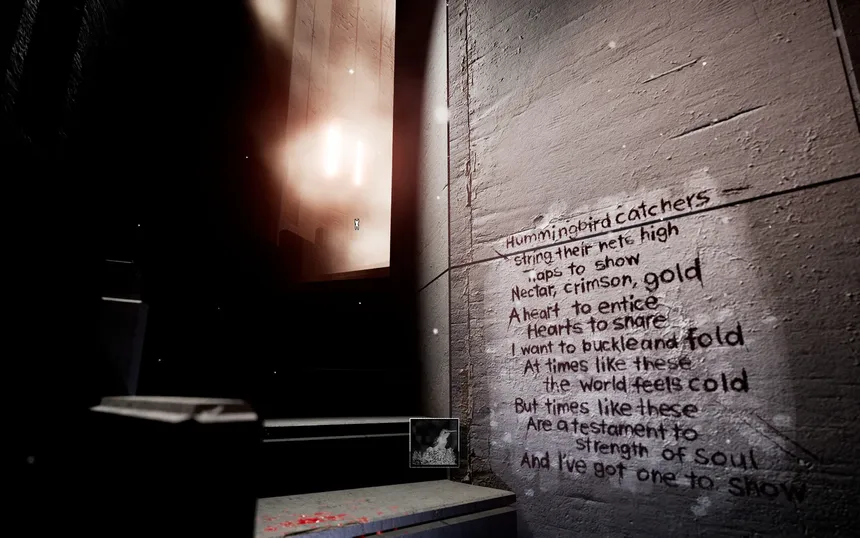 Hummingbird catchers
string their nets high
Traps to show
Nectar, crimson, gold
A heart to entice
Hearts to snare
I want to buckle and fold
At times like these
the world feels cold
But times like these
Are a testament to
strength of soul
And I've got one to show